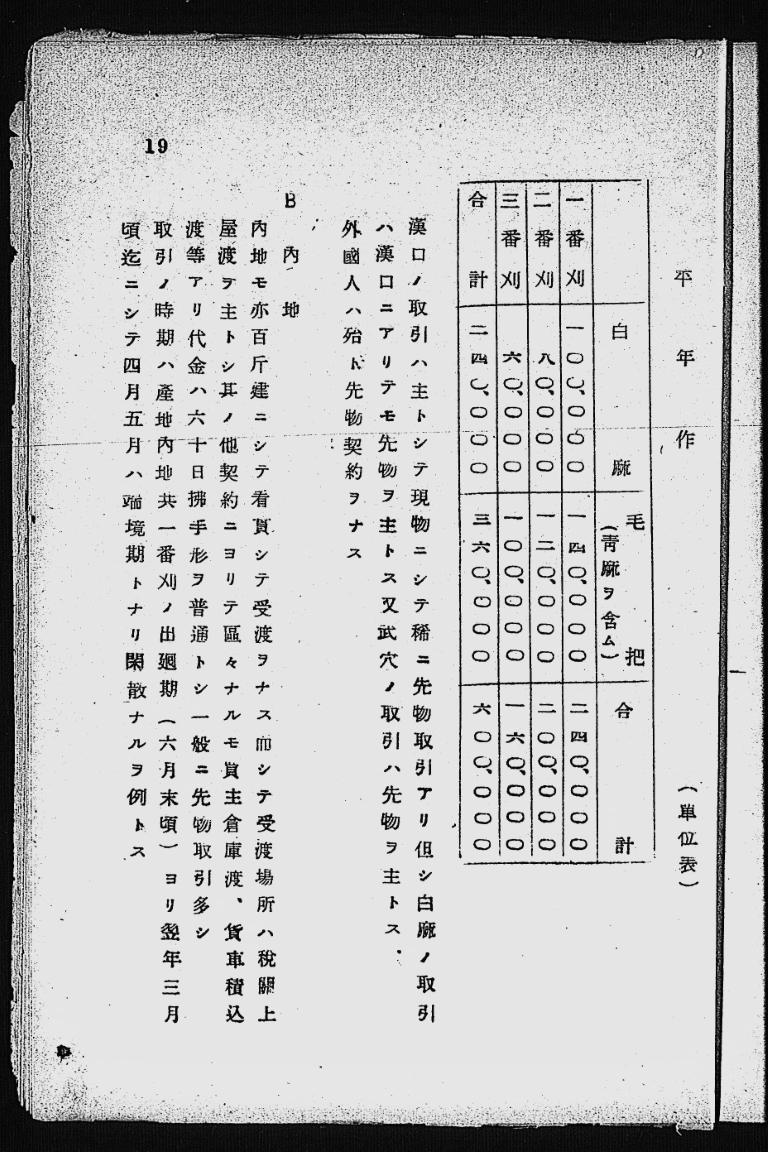 平年作 (單位表)
白麻 毛把(青麻ヲ含ム) 合計
一番刈 一〇〇、〇〇〇 一四〇、〇〇〇 二四〇、〇〇〇
二番刈 八〇、〇〇〇 一二〇、〇〇〇 二〇〇、〇〇〇
三番刈 六〇、〇〇〇 一〇〇、〇〇〇 一六〇、〇〇〇
合計 二四〇、〇〇〇 三六〇、〇〇〇 六〇〇、〇〇〇
漢口ノ取引ハ主トシテ現物ニシテ稀ニ先物取引アリ但シ白麻ノ取引
ハ漢口ニアリテモ先物ヲ主トス又武穴ノ取引ハ先物ヲ主トス、
外國人ハ殆ト先物契約ヲナス
B 內地
內地モ亦百斤建ニシテ看貫シテ受渡ヲナス而シテ受渡場所ハ稅關上
屋渡ヲ主トシ其ノ他契約ニヨリテ區々ナルモ買主倉庫渡、貨車積込
渡等アリ代金ハ六十日拂手形ヲ普通トシ一般ニ先物取引多シ
取引ノ時期ハ產地內地共一番刈ノ出廻期(六月末頃)ヨリ翌年三月
頃迄ニシテ四月五月ハ端境期トナリ閑散ナルヲ例トス
19